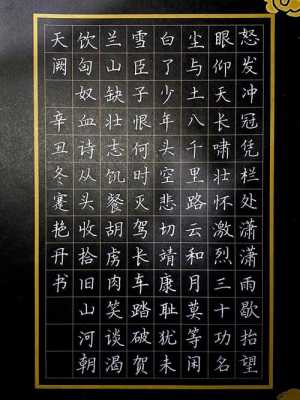 怒发冲冠凭栏处潇潇雨歇抬望
眼仰天长啸壮怀激烈三十功名
尘与土八千里路云和月莫等闲
白了少年头空悲切靖康耻犹未
雪臣子恨何时灭驾长车踏破贺
兰山缺壮志饥餐胡虏肉笑谈渴
饮匈奴血诗从头收拾旧山河朝
天阙 辛丑冬蹇艳丹书